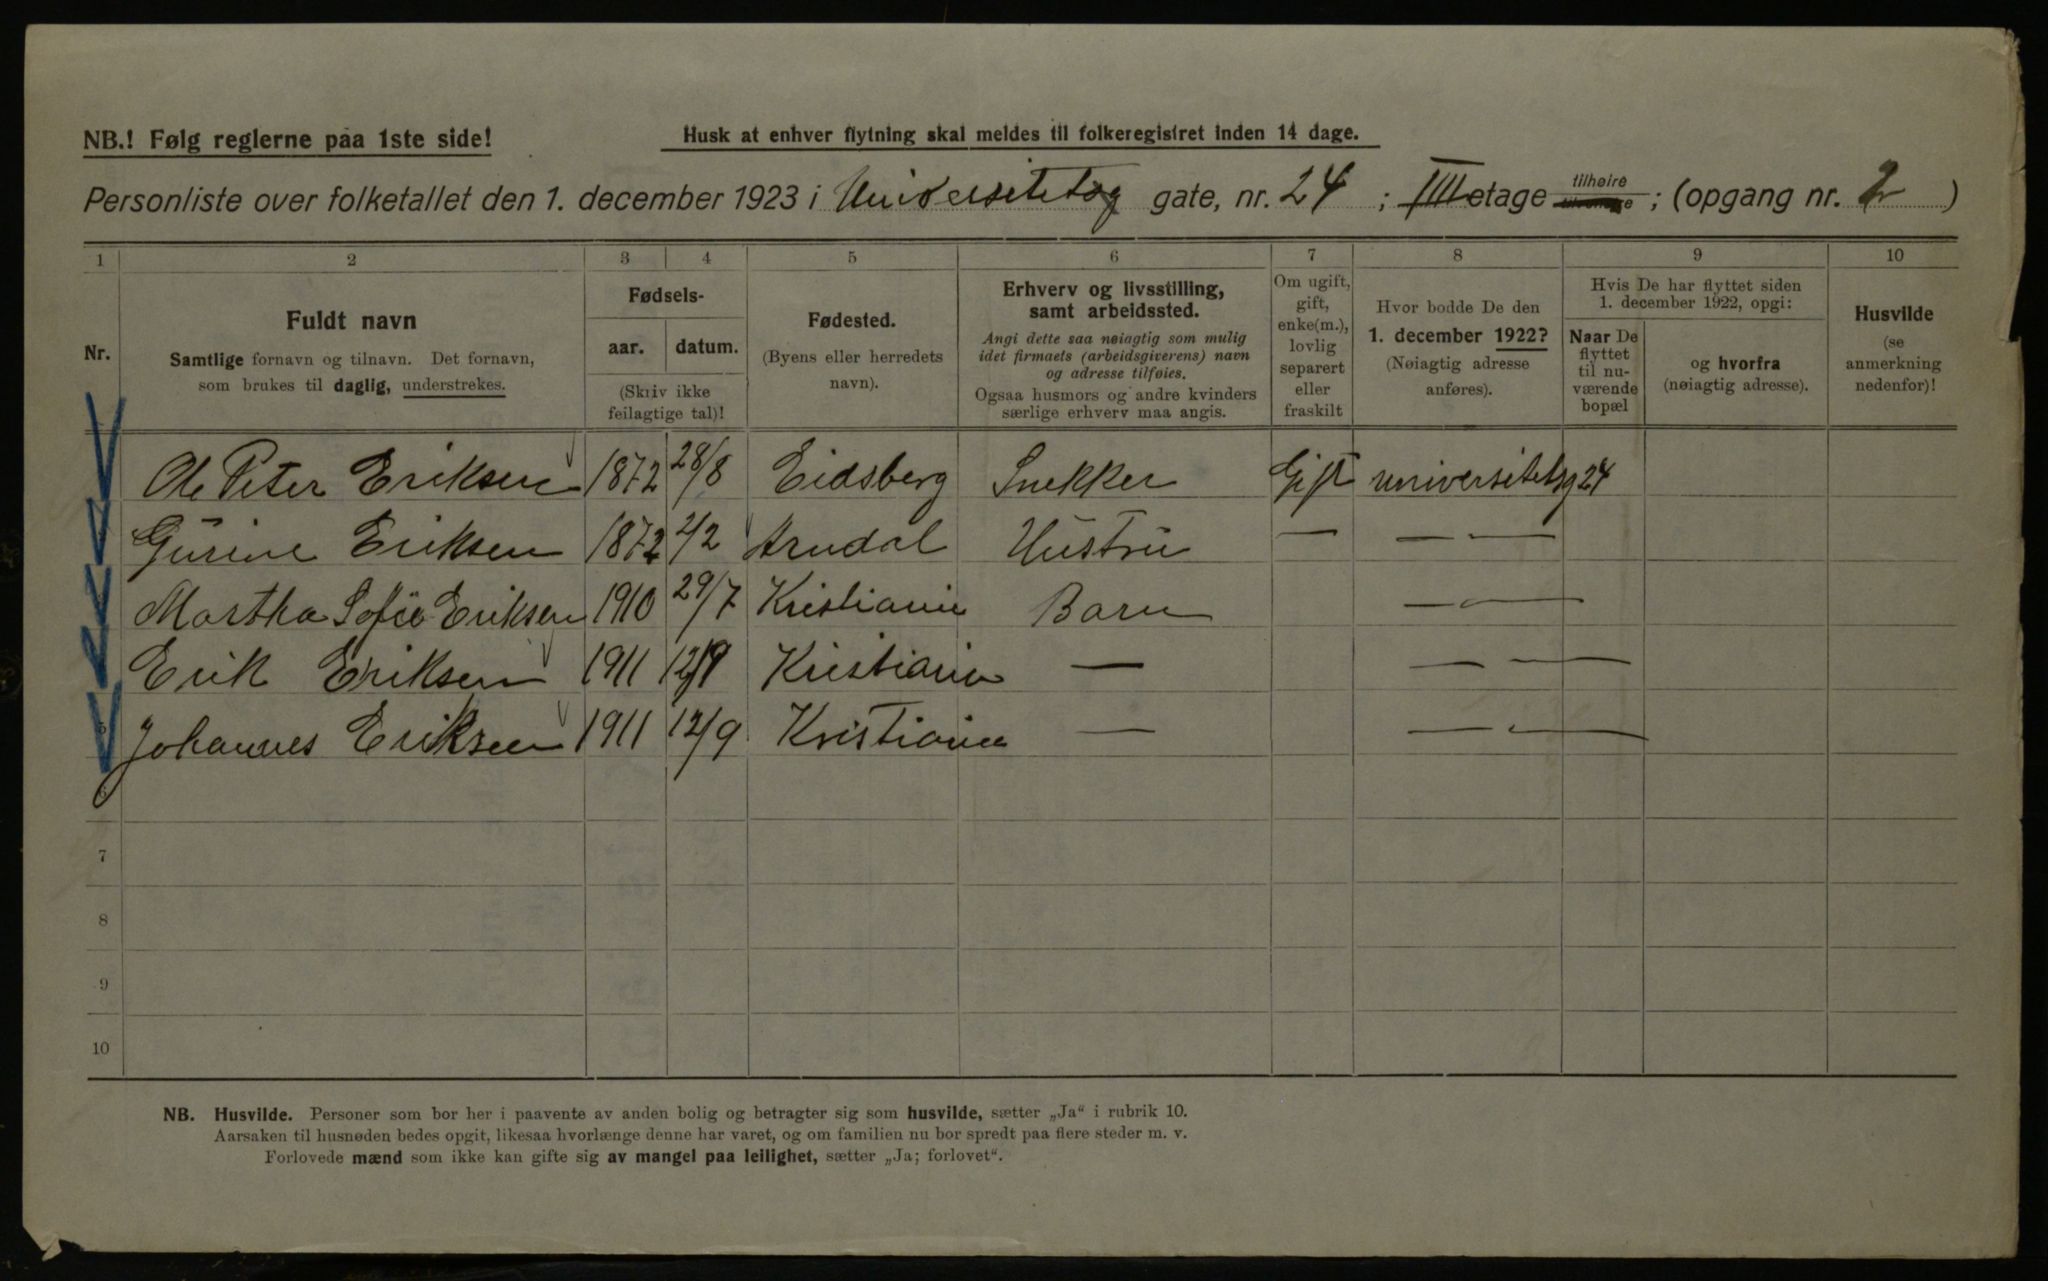 NB.! Følg reglerne paa 1ste side!
Husk at enhver flytning skal meldes til folkeregistret inden 14 dage.
Personliste over folketallet den 1. december 1923 i Universitetsg gate, nr. 24 ; IIII etage tilhøire ; (opgang nr. 2 )
1 2 3 4 5 6 7 8 9 10
Nr.
Fuldt navn
Samtlige fornavn og tilnavn. Det fornavn,
som brukes til daglig, understrekes.
Fødsels-
aar. datum.
(Skriv ikke
feilagtige tal)!
Fødested.
(Byens eller herredets
navn).
Erhverv og livsstilling,
samt arbeidssted.
Angi dette saa nøiagtig som mulig
idet firmaets (arbeidsgiverens) navn
og adresse tilføies.
Ogsaa husmors og andre kvinders
særlige erhverv maa angis.
Om ugift,
gift,
enke(m.),
lovlig
separert
eller
fraskilt
Hvor bodde De den
1. december 1922?
(Nøiagtig adresse
anføres).
Hvis De har flyttet siden
1. december 1922, opgi:
Naar De
flyttet
til nu-
værende
bopæl
og hvorfra
(nøiagtig adresse).
Husvilde
(se
anmerkning
nedenfor)!
Ole Peter Eriksen 1872 28/8 Eidsberg Snekker Gift universitetsg 24
Gurine Eriksen 1872 2/2 Arndal Hustru — — —
Martha Sofie Eriksen 1910 29/7 Kristiania Barn — —
Erik Eriksen 1911 12/9 Kristiania — — —
5 Johannes Eriksen 1911 12/9 Kristiania — — —
6
7
8
9
10
NB. Husvilde. Personer som bor her i paavente av anden bolig og betragter sig som husvilde, sætter „Ja“ i rubrik 10.
Aarsaken til husnøden bedes opgit, likesaa hvorlænge denne har varet, og om familien nu bor spredt paa flere steder m. v.
Forlovede mænd som ikke kan gifte sig av mangel paa leilighet, sætter „Ja; forlovet“.